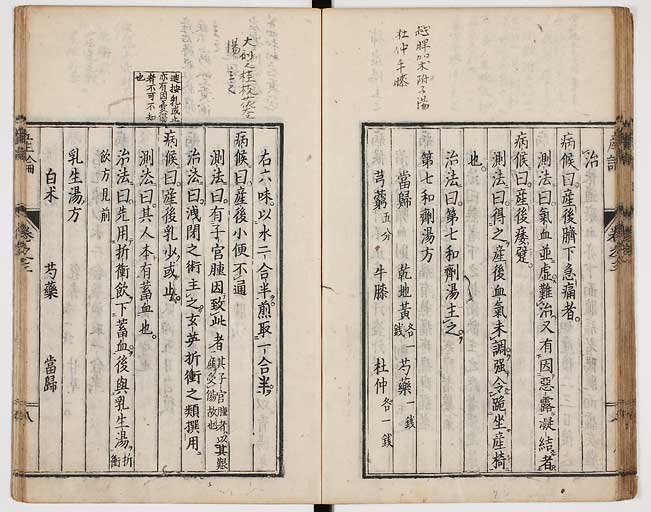 越婢加朮附子湯
杜仲牛膝
治
病候曰産後臍下急痛者
測法曰氣血並虚難治又有因惡露凝結者
病候曰産後痿躄
測法曰得之産後血氣未調強令跪坐産椅
也
治法曰第七和劑湯主之
第七和劑湯方
當歸 乾地黃各一錢 芍藥一錢
芎藭五分 牛膝 杜仲各一錢
産論
右六味以水二合半煎取一合半
病候曰産後小便不通
測法曰有子宮腫因致此者
治法曰洩閉之術主之玄英折衝之類撰用
病候曰産後乳少或止
測法曰其人本有蓄血也
治法曰先用折衝飲下蓄血後與乳生湯折衝
飲方見前
乳生湯方
白朮 芍藥 當歸
八